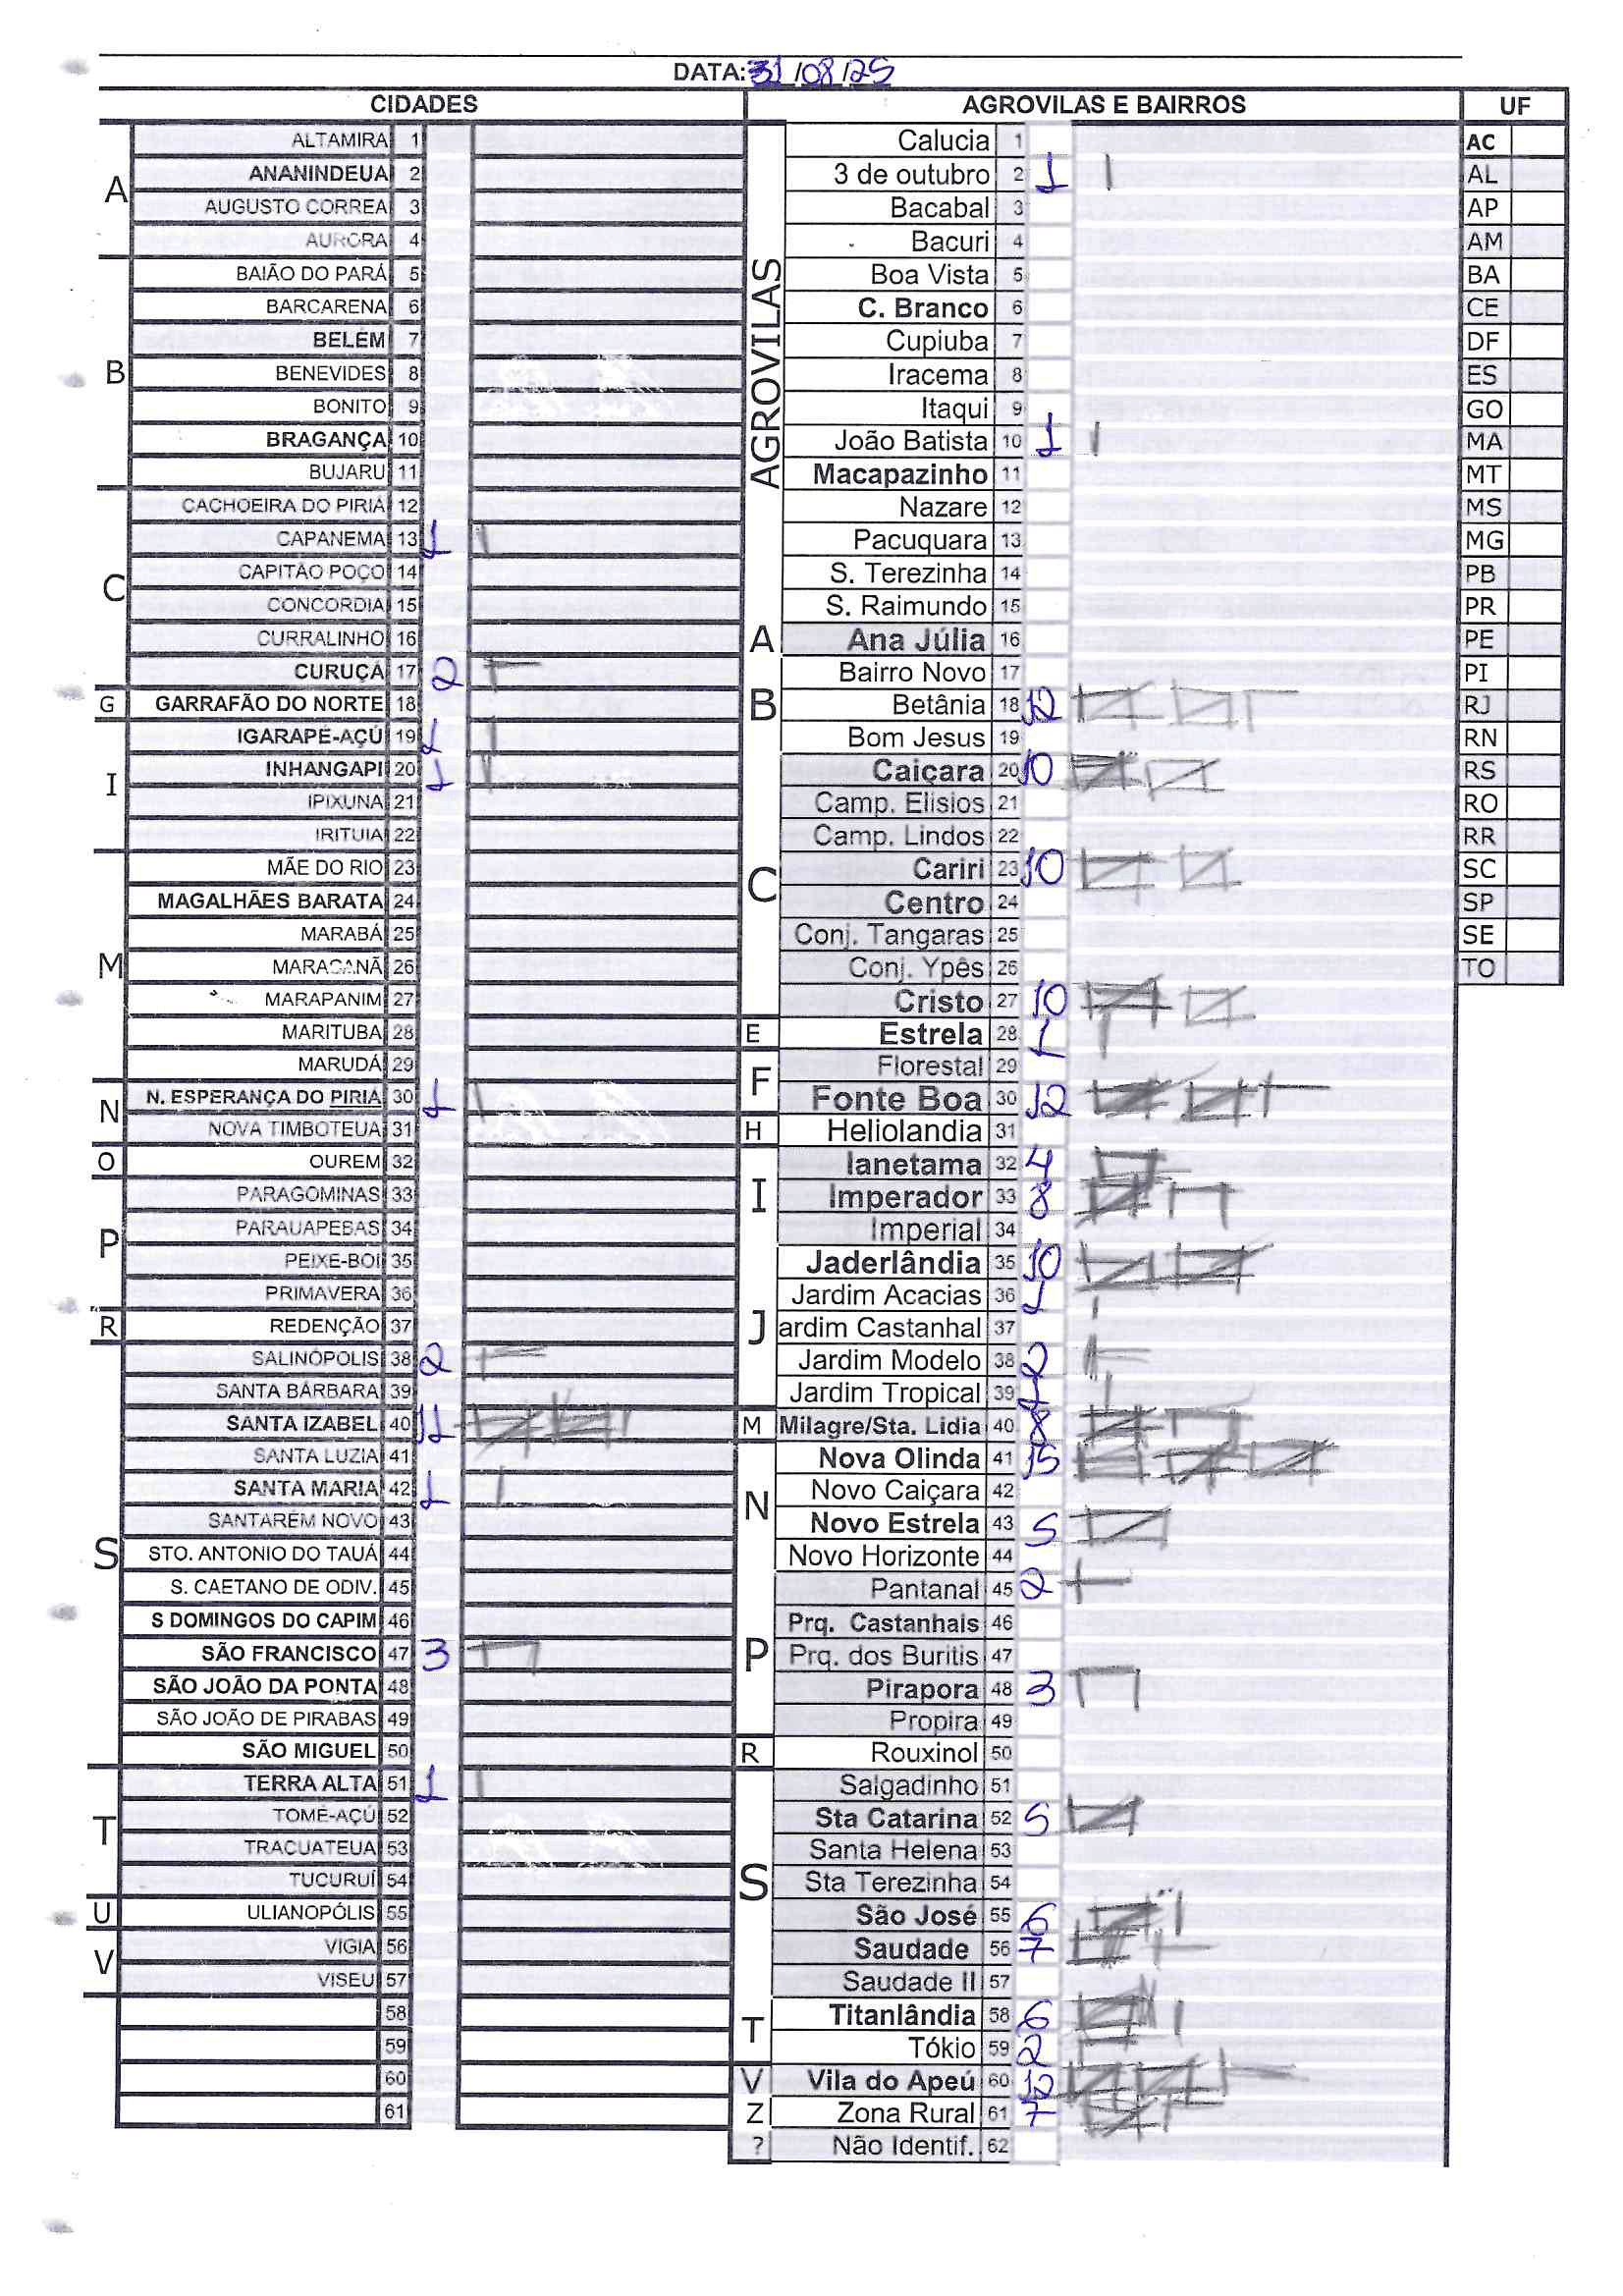 DATA: 31/08/25
CIDADES
A
ALTAMIRA 1
ANANINDEUA 2
AUGUSTO CORREA 3
AURORA 4
B
BAIÃO DO PARÁ 5
BARCARENA 6
BELÉM 7
BENEVIDES 8
BONITO 9
BRAGANÇA 10
BUJARU 11
C
CACHOEIRA DO PIRIÁ 12
CAPANEMA 13 1
CAPITÃO POÇO 14
CONCORDIA 15
CURRALINHO 16
CURUÇÁ 17 2
G
GARRAFÃO DO NORTE 18
I
IGARAPÉ-AÇÚ 19 1
INHANGAPI 20 1
IPIXUNA 21
IRITUIA 22
M
MÃE DO RIO 23
MAGALHÃES BARATA 24
MARABÁ 25
MARACANÃ 26
MARAPANIM 27
MARITUBA 28
MARUDÁ 29
N
N. ESPERANÇA DO PIRIA 30 1
NOVA TIMBOTEUA 31
O
OUREM 32
P
PARAGOMINAS 33
PARAUAPEBAS 34
PEIXE-BOI 35
PRIMAVERA 36
R
REDENÇÃO 37
S
SALINÓPOLIS 38 2
SANTA BÁRBARA 39
SANTA IZABEL 40 11
SANTA LUZIA 41
SANTA MARIA 42 1
SANTARÉM NOVO 43
STO. ANTONIO DO TAUÁ 44
S. CAETANO DE ODIV. 45
S DOMINGOS DO CAPIM 46
SÃO FRANCISCO 47 3
SÃO JOÃO DA PONTA 48
SÃO JOÃO DE PIRABAS 49
SÃO MIGUEL 50
T
TERRA ALTA 51 1
TOMÉ-AÇÚ 52
TRACUATEUA 53
TUCURUÍ 54
U
ULIANOPÓLIS 55
V
VIGIA 56
VISEU 57
58
59
60
61
AGROVILAS E BAIRROS
AGROVILAS
Calucia 1
3 de outubro 2 1
Bacabal 3
Bacuri 4
Boa Vista 5
C. Branco 6
Cupiuba 7
Iracema 8
Itaqui 9
João Batista 10 1
Macapazinho 11
Nazare 12
Pacuquara 13
S. Terezinha 14
S. Raimundo 15
A
Ana Júlia 16
B
Bairro Novo 17
Betânia 18 12
Bom Jesus 19
C
Caiçara 20 10
Camp. Elisios 21
Camp. Lindos 22
Cariri 23 10
Centro 24
Conj. Tangaras 25
Conj. Ypês 26
Cristo 27 10
E
Estrela 28 1
F
Florestal 29
Fonte Boa 30 12
H
Heliolandia 31
I
Ianetama 32 4
Imperador 33 8
Imperial 34
J
Jaderlândia 35 10
Jardim Acacias 36 1
ardim Castanhal 37
Jardim Modelo 38 2
Jardim Tropical 39 1
M
Milagre/Sta. Lidia 40 8
N
Nova Olinda 41 15
Novo Caiçara 42
Novo Estrela 43 5
Novo Horizonte 44
P
Pantanal 45 2
Prq. Castanhais 46
Prq. dos Buritis 47
Pirapora 48 3
Propira 49
R
Rouxinol 50
S
Salgadinho 51
Sta Catarina 52 5
Santa Helena 53
Sta Terezinha 54
São José 55 6
Saudade 56 7
Saudade II 57
T
Titanlândia 58 6
Tókio 59 2
V
Vila do Apeú 60 12
Z
Zona Rural 61 7
?
Não Identif. 62
UF
AC
AL
AP
AM
BA
CE
DF
ES
GO
MA
MT
MS
MG
PB
PR
PE
PI
RJ
RN
RS
RO
RR
SC
SP
SE
TO